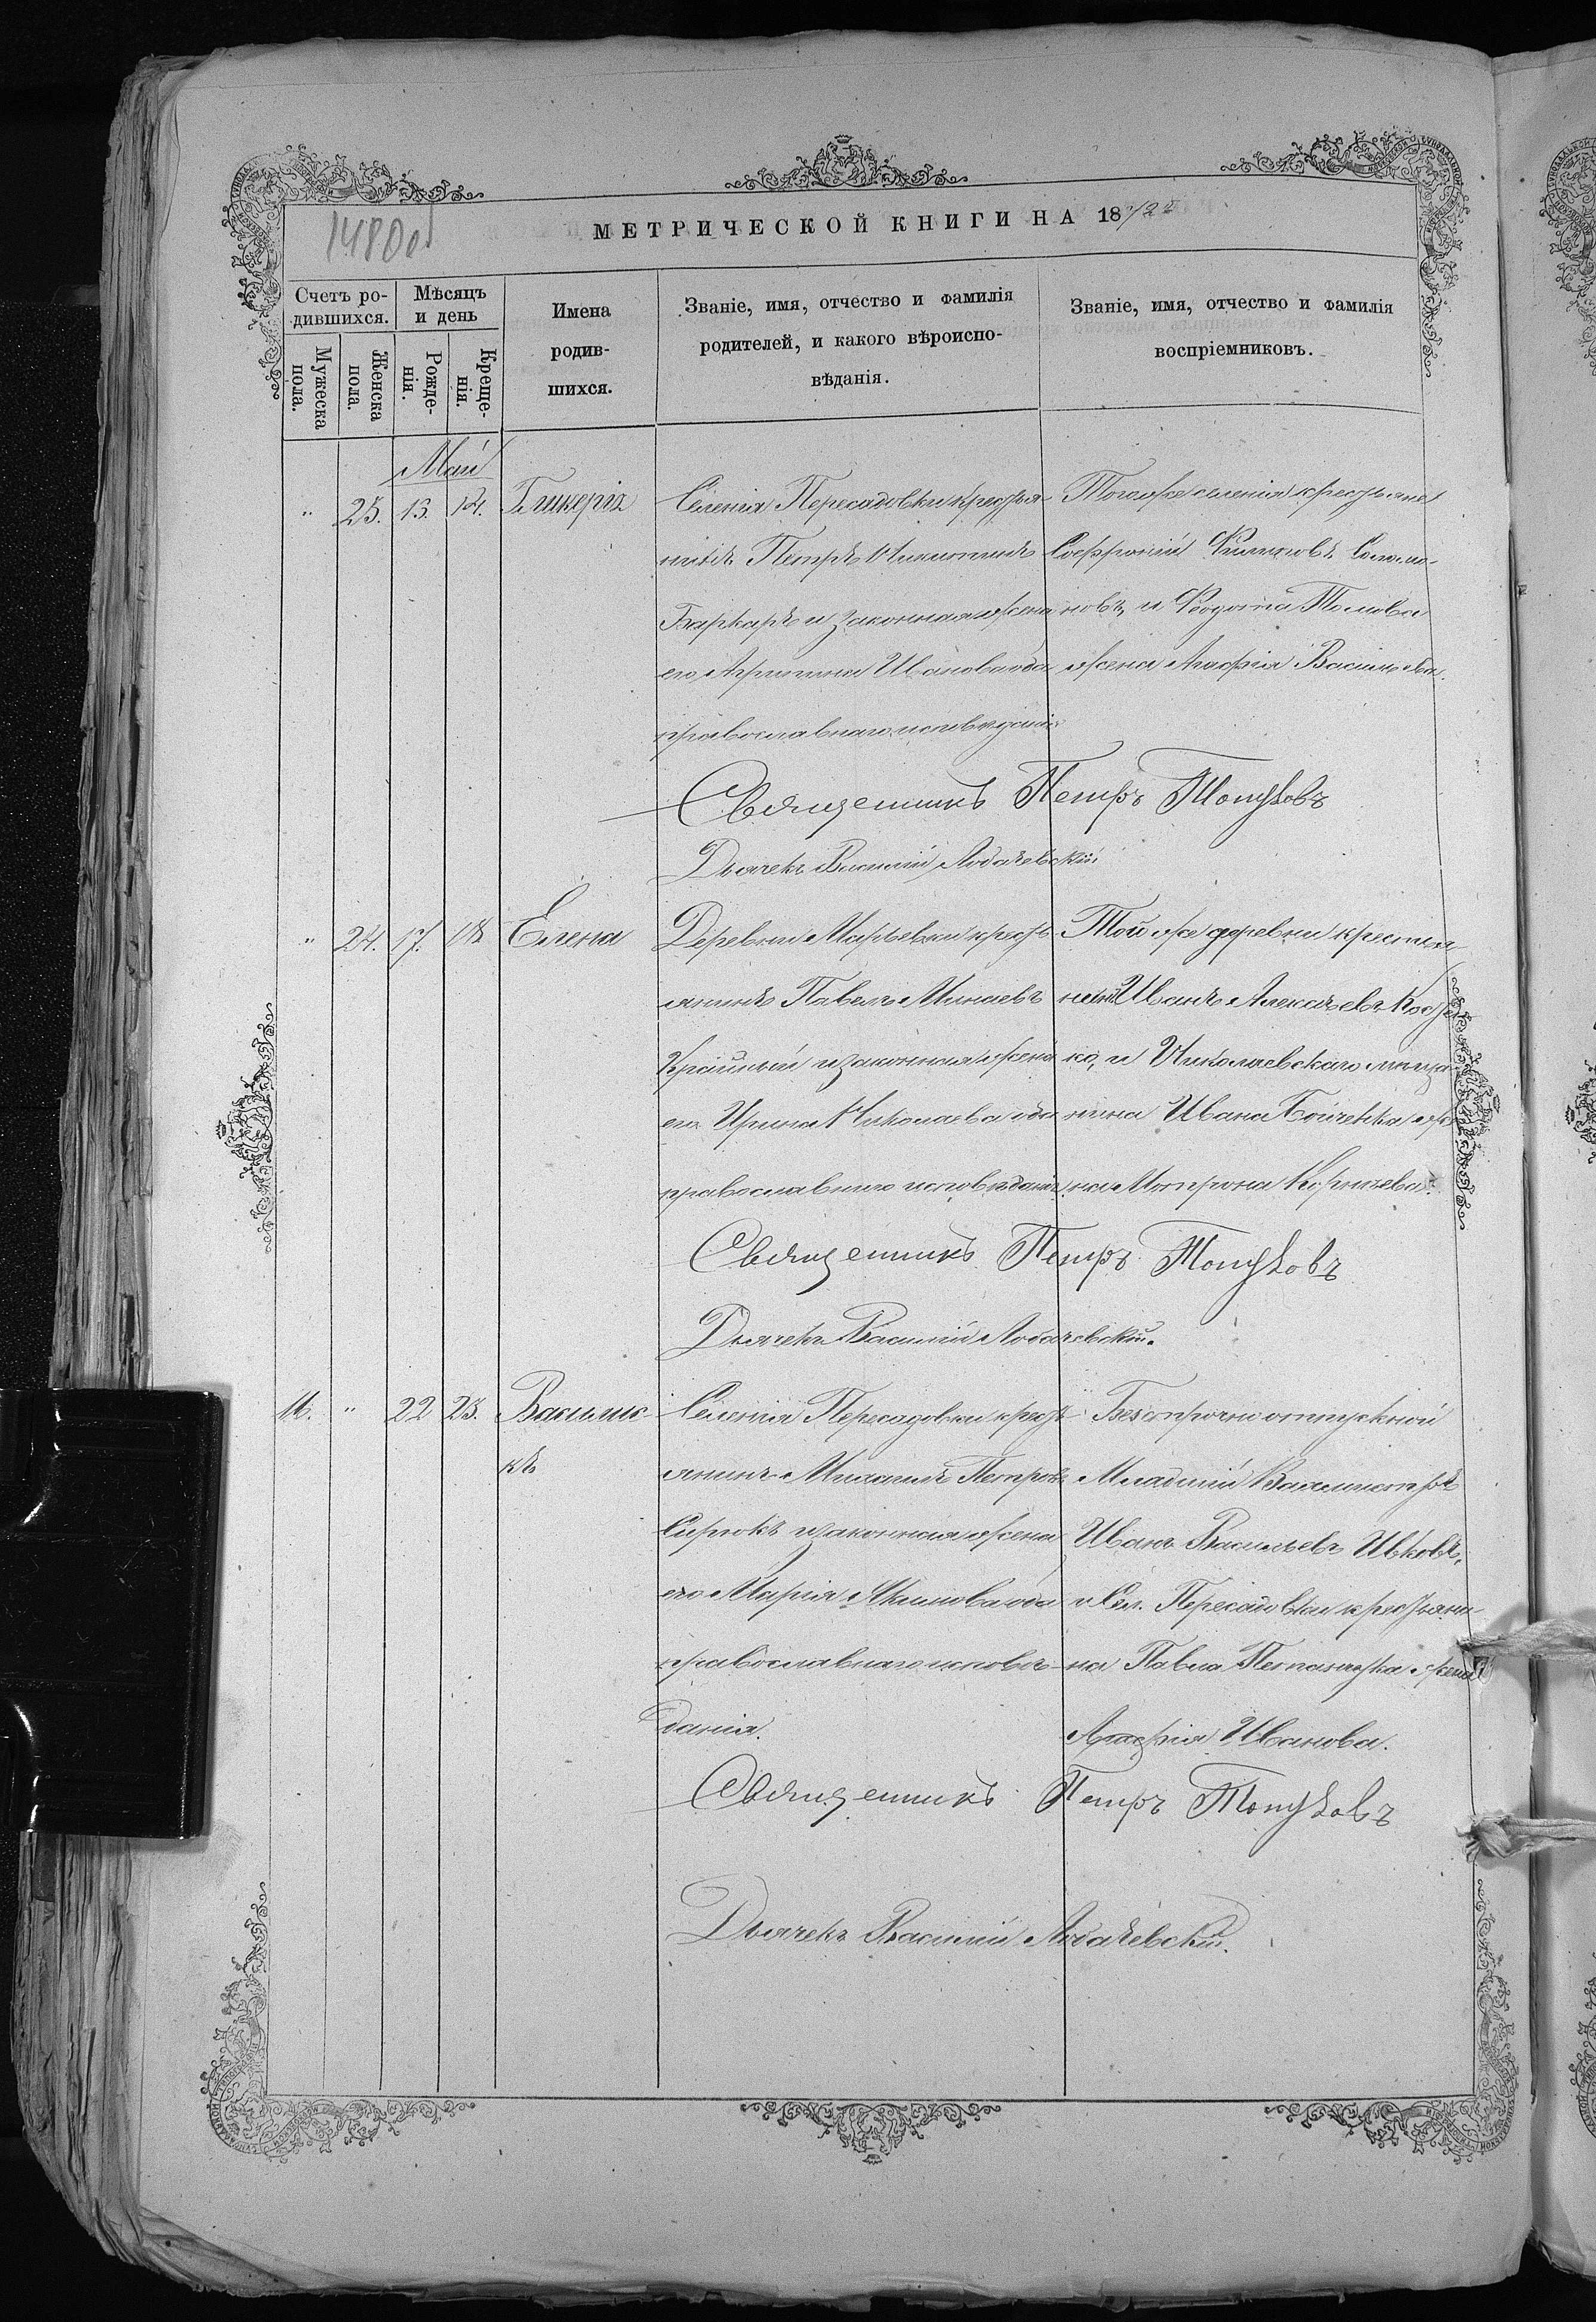 1480об
МЕТРИЧЕСКОЙ КНИГИ НА 1872й
Счетъ ро-
дившихся.
Мѣсяцъ
и день
Имена
родив-
шихся.
Званіе, имя, отчество и фамилія
родителей, и какого вѣроиспо-
вѣданія.
Званіе, имя, отчество и фамилія
воспріемниковъ.
Мужеска
пола.
Женска
пола.
Рожде-
нія.
Креще-
нія.
Май
" 23. 13. 14. Гликерія
Селенія Пересадовки крестья-
нинъ Петръ Никитинъ
Баркаръ и законная жена
его Агрипина Иванова оба
православнаго исповѣданія
Тогоже селенія крестьяне
Софроній Филиповъ Соломо-
новъ, и Федота Попова
жена Агафія Васильева.
Священникъ Петръ
Дьячекъ Василій Лобачевскій
" 24. 17. 18 Елена
Деревни Марьевки кресть-
янинъ Павелъ Минаевъ
Крайный и законная жена
его Ирина Николаева оба
православнаго исповѣданія
Той же деревни крестья-
нинъ Иванъ Алексѣевъ
ко, и Николаевскаго мѣща-
нина Ивана Бойченка же-
на Мотрона Корнѣева.
Священникъ Петръ
Дьячекъ Василій Лобачевскій.
16. " 22 23. Василис-
къ
Селенія Пересадовки кресть-
янинъ Михаилъ Петровъ
Сирокъ и законная жена
его Марія Акимова оба
православнаго исповѣ-
данія.
Безсрочно отпускной
Младшій Вахмистръ
Иванъ Васильевъ Ивковъ,
и Сел. Пересадовки крестьяни-
на Павла жена
Агафія Иванова.
Священникъ Петръ
Дьячекъ Василій Лобачевскій.